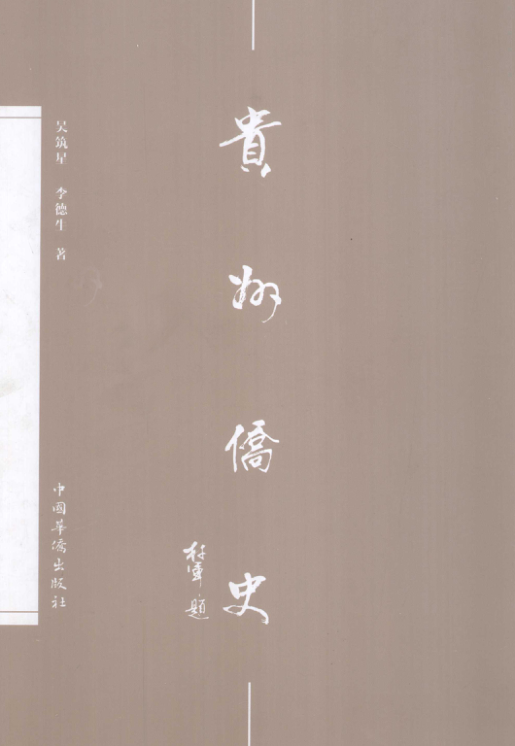 貴州僑史
題
吴筑星 李德生 著
中國華僑出版社